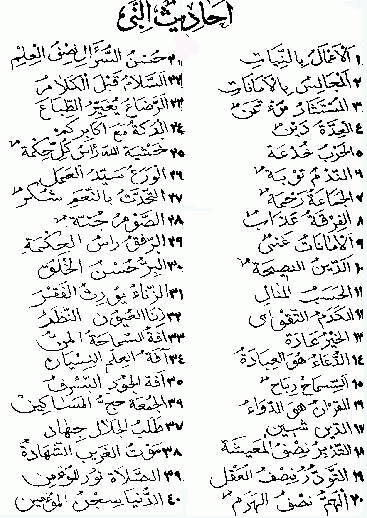 أحاديث النبي
١ الأعمال بالنيات
٢ المجالس بالأمانات
٣ المستشار مؤتمن
٤ العدة دين
٥ الحرب خدعة
٦ الندم توبة
٧ الجماعة رحمة
٨ الفرقة عذاب
٩ الأمانات غنى
١٠ الدين النصيحة
١١ الحسب المال
١٢ الكرم التقوى
١٣ الخير عادة
١٤ الدعاء هو العبادة
١٥ السماح رباح
١٦ القرآن هو الدواء
١٧ الدين شين
١٨ التدبير نصف المعيشة
١٩ التودد نصف العقل
٢٠ الهم نصف الهرم
٢١ حسن السؤال نصف العلم
٢٢ السلام قبل الكلام
٢٣ الرضاع يغير الطباع
٢٤ البركة مع أكابركم
٢٥ خشية الله رأس كل حكمة
٢٦ الورع سيد العمل
٢٧ التحدث بالنعم شكر
٢٨ الصوم جنة
٢٩ الرفق رأس الحكمة
٣٠ البر حسن الخلق
٣١ الزناء يورث الفقر
٣٢ زنا العيون النظر
٣٣ آفة السماحة المن
٣٤ آفة العلم النسيان
٣٥ آفة الجود السرف
٣٦ الجمعة حج المساكين
٣٧ طلب الحلال جهاد
٣٨ موت الغريب الشهادة
٣٩ الصلاة نور المؤمن
٤٠ الدنيا سجن المؤمنين